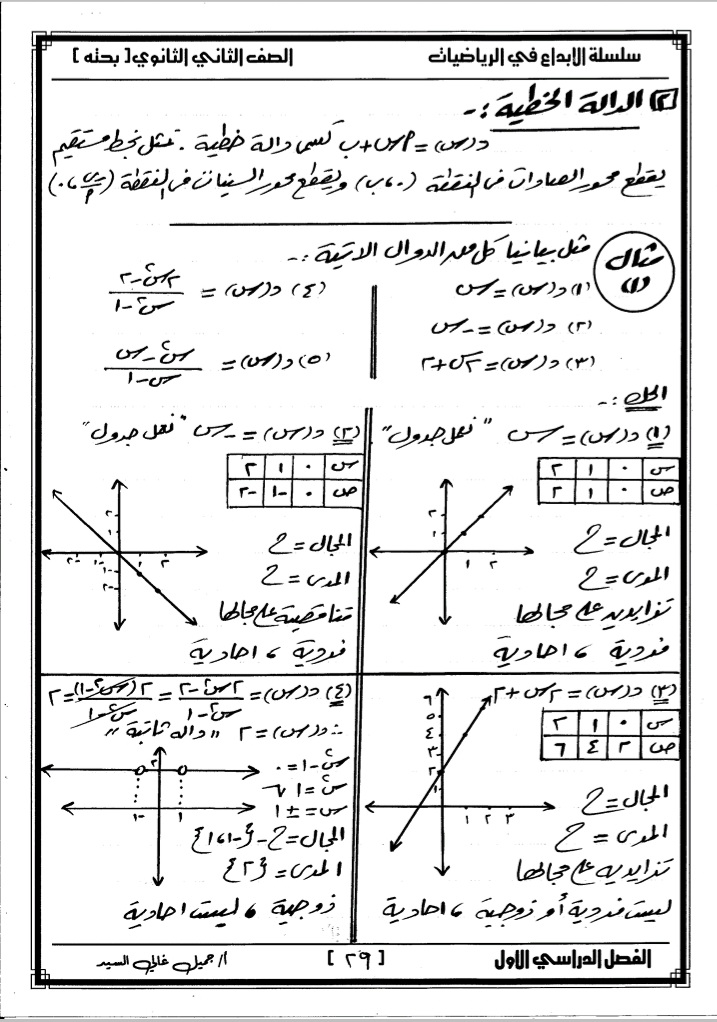 سلسلة الابداع في الرياضيات
الصف الثاني الثانوي [ بحته ]
[٢] الدالة الخطية :-
د(س) = ٢س + ب تسمى دالة خطية . تمثل بخط مستقيم
يقطع محور الصادات في النقطة (٠، ب) ويقطع محور السينات في النقطة (-ب/٢ ، ٠)
مثال (١)
مثل بيانيا كل من الدوال الاتية :-
(١) د(س) = س
(٢) د(س) = -س
(٣) د(س) = ٢س + ٢
(٤) د(س) = (٢س٢ - ٢)/(س٢ - ١)
(٥) د(س) = (س٢ - س)/(س - ١)
الحل :-
(١) د(س) = س "نعمل جدول"
س ٠ ١ ٢
ص ٠ ١ ٢
٢
١
١ ٢
المجال = ح
المدى = ح
تزايديه على مجالها
فردية ، احادية
(٢) د(س) = -س "نعمل جدول"
س ٠ ١ ٢
ص ٠ -١ -٢
٢
١
-٢ -١ ١ ٢
-١
-٢
المجال = ح
المدى = ح
تناقصية على مجالها
فردية ، احادية
(٣) د(س) = ٢س + ٢
س ٠ ١ ٢
ص ٢ ٤ ٦
٦
٥
٤
٣
٢
١
١ ٢ ٣
المجال = ح
المدى = ح
تزايديه على مجالها
ليست فردية أو زوجية ، احادية
(٤) د(س) = (٢س٢ - ٢)/(س٢ - ١) = ٢(س٢ - ١)/(س٢ - ١) = ٢
∴ د(س) = ٢ "دالة ثابتة"
س٢ - ١ = ٠
س٢ = ١
س = ± ١
٢
-١ ١
المجال = ح - {-١، ١}
المدى = {٢}
زوجية ، ليست احادية
الفصل الدراسي الاول
[ ٢٩ ]
أ/ جميل غالي السيد